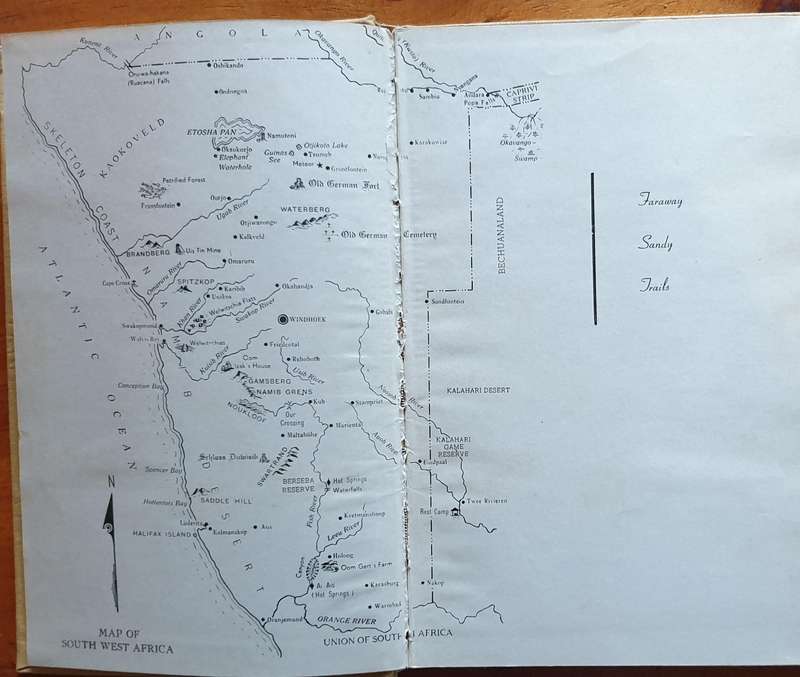 ANGOLA
Kunene River
Okavango River
(Kuito) River
Oruwa-hakana
(Ruacana) Falls
Oshikando
Ondongua
Sambiu
Andara
Popa Falls
CAPRIVI
STRIP
Okavango
Swamp
SKELETON COAST
KAOKOVELD
ETOSHA PAN
Namutoni
Okaukuejo
Elephant
Waterhole
Guinas
See
Otjikoto Lake
Tsumeb
Meteor
Grootfontein
Karakuwise
Petrified Forest
Fransfontein
Old German Fort
Outjo
Ugab River
Otjiwarongo
WATERBERG
Kalkveld
Old German Cemetery
BRANDBERG
Uis Tin Mine
Omaruru
Omaruru River
Cape Cross
SPITZKOP
Karibib
Usakos
Okahandja
Khan River
Welwitchia Flats
Swakop River
Swakopmund
Walvis Bay
Welwitchias
WINDHOEK
Gobabis
Sandfontein
BECHUANALAND
Kuiseb River
Friedental
Rehoboth
Usib River
Oom
Izak's House
GAMSBERG
NAMIB GRENS
NOUKLOOF
Conception Bay
Kub
Stampriet
Nossob River
KALAHARI DESERT
Our
Crossing
Mariental
Maltahöhe
Auob River
KALAHARI
GAME
RESERVE
Schloss Duwisib
SWARTRAND
BERSEBA
RESERVE
Hot Springs
Waterfalls
Spencer Bay
SADDLE HILL
Hottentots Bay
Twee Rivieren
Rest Camp
Fish River
Keetmanshoop
Leeu River
Lüderitz
Kolmanskop
Aus
HALIFAX ISLAND
Holoog
Oom Gert's Farm
Canyon
Ai-Ais
(Hot Springs)
Karasburg
Warmbad
Nakop
Oranjemund
ORANGE RIVER
UNION OF SOUTH AFRICA
ATLANTIC OCEAN
NAMIB DESERT
N
MAP OF
SOUTH WEST AFRICA
Faraway
Sandy
Trails